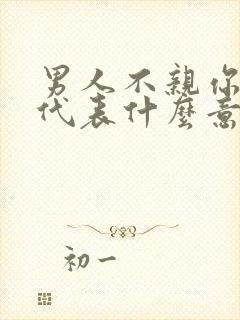 男人不親你
代表什麼意
初一